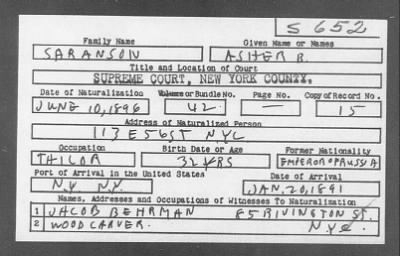 S 652
Family Name Given Name or Names
SARANSON ASHER B.
Title and Location of Court
SUPREME COURT, NEW YORK COUNTY.
Date of Naturalization Volume or Bundle No. Page No. Copy of Record No.
JUNE 10, 1896 42 — 15
Address of Naturalized Person
113 E 56 ST N.Y.C
Occupation Birth Date or Age Former Nationality
THILOR 32 YRS EMPEROR OPRUSSIA
Port of Arrival in the United States Date of Arrival
N.Y. N.Y. JAN. 20, 1891
Names, Addresses and Occupations of Witnesses To Naturalization
1 JACOB BEHRMAN 85 RIVINGTON ST.
2 WOOD CARVER. N.Y.C.